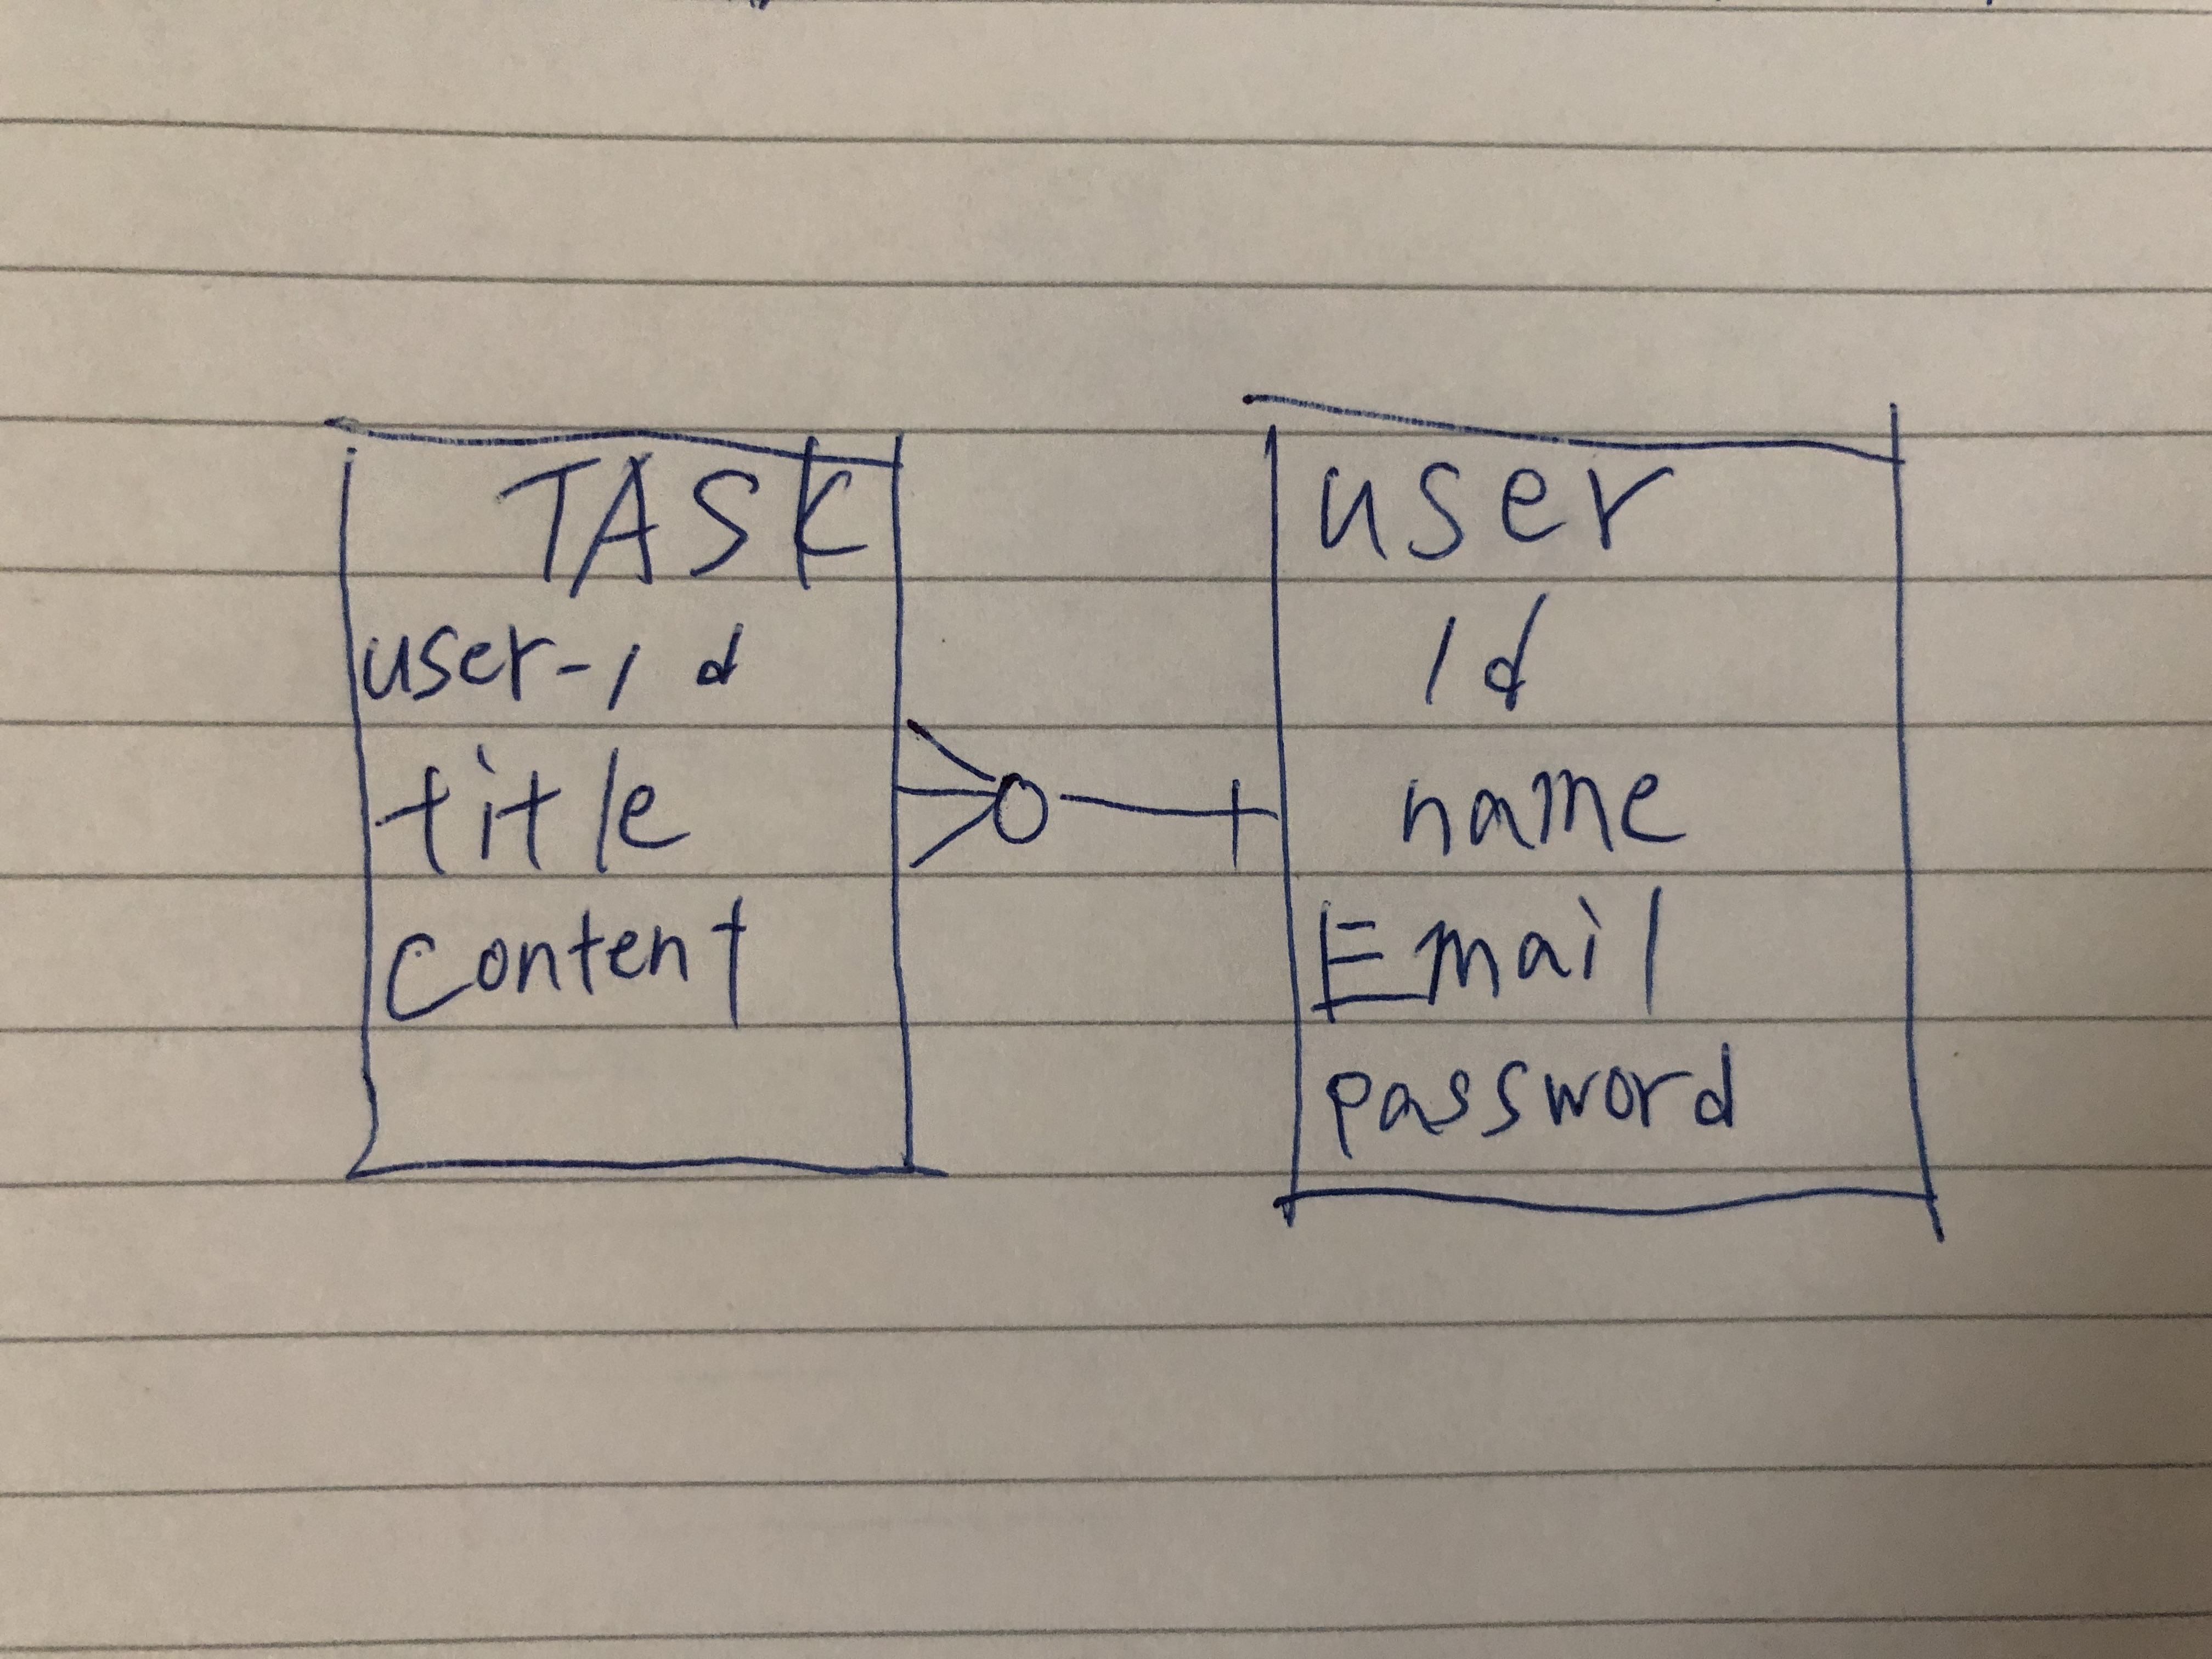 TASK
user-id
title
Content
user
id
name
Email
password